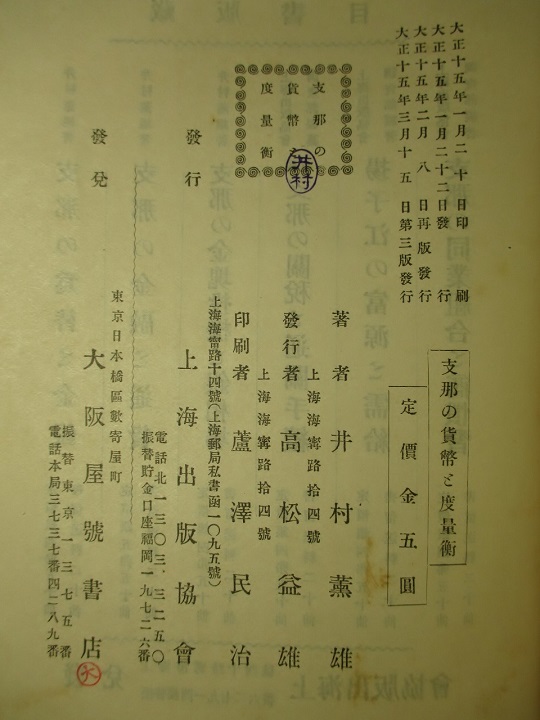 大正十五年一月二十日印刷
大正十五年一月二十二日發行
大正十五年二月八日再版發行
大正十五年三月十五日第三版發行
支那の貨幣と度量衡
定價金五圓
支那の
貨幣と
度量衡
井村
著者 井村薰雄
上海海寗路拾四號
發行者 高松益雄
上海海寗路拾四號
印刷者 蘆澤民治
上海海甯路十四號(上海郵局私書函一〇九五號)
發行 上海出版協會
電話北一三〇三、三二五〇
振替貯金口座福岡一九七二六番
東京日本橋區數寄屋町
發兌 大阪屋號書店
振替東京一三七五番
電話本局三七三七番四二八九番
大